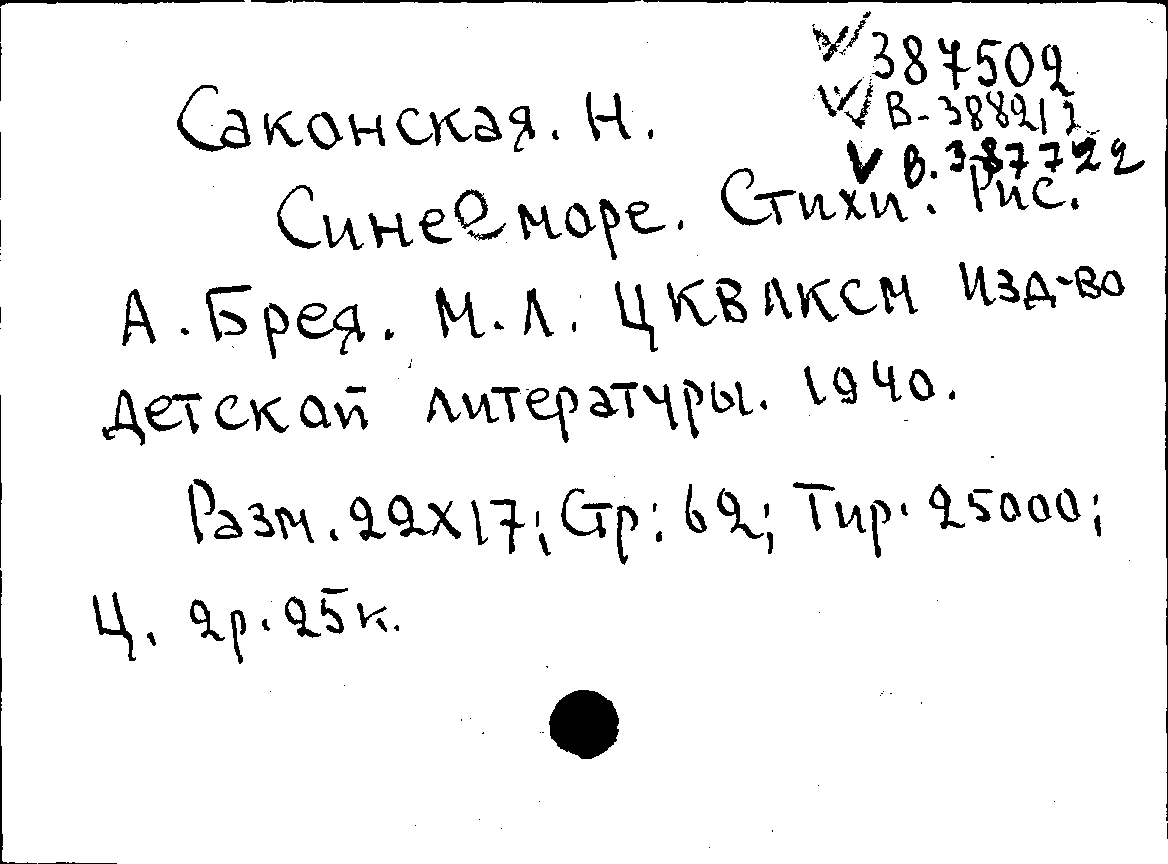 387502
В-388217
В.387722
Саконская. Н.
Синее море. Стихи. Рис.
А. Брея. М.Л. ЦКВЛКСМ Изд-во
детской литературы. 1940.
Разм. 22х17; Стр: 62; Тир. 25000;
Ц. 2р. 25к.